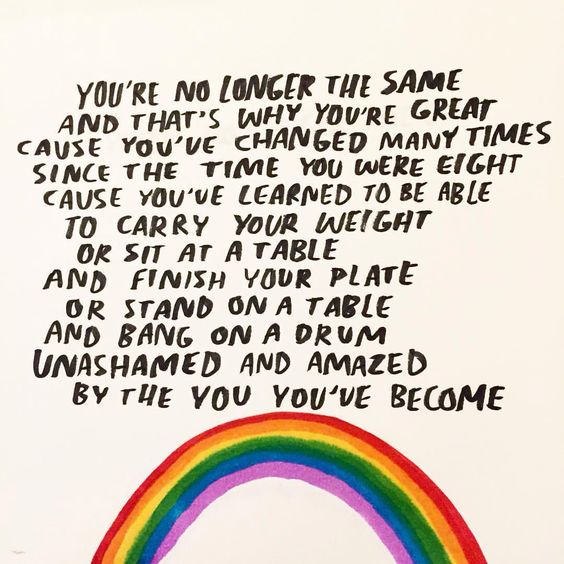 YOU'RE NO LONGER THE SAME
AND THAT'S WHY YOU'RE GREAT
CAUSE YOU'VE CHANGED MANY TIMES
SINCE THE TIME YOU WERE EIGHT
CAUSE YOU'VE LEARNED TO BE ABLE
TO CARRY YOUR WEIGHT
OR SIT AT A TABLE
AND FINISH YOUR PLATE
OR STAND ON A TABLE
AND BANG ON A DRUM
UNASHAMED AND AMAZED
BY THE YOU YOU'VE BECOME